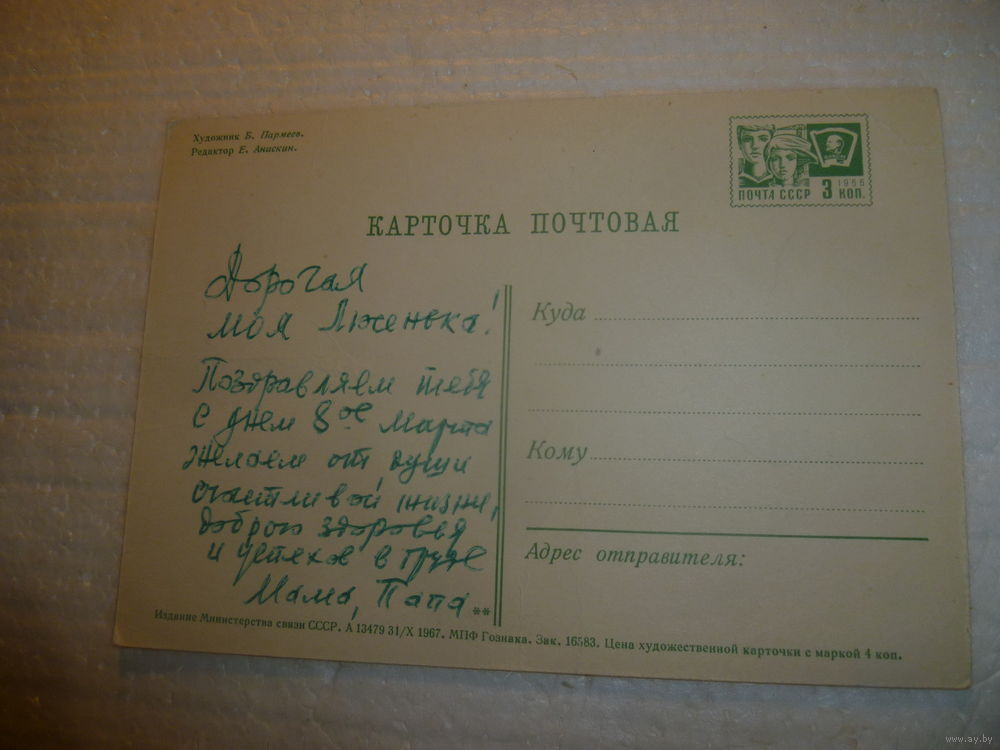 Художник Б. Пармеев.
Редактор Е. Анискин.
ПОЧТА СССР 3 КОП.
1966
КАРТОЧКА ПОЧТОВАЯ
Дорогая
моя Люсенька!
Поздравляем тебя
с днем 8ое Марта
желаем от души
счастливой жизни,
доброго здоровья
и успехов в труде
Мама, Папа
**
Куда
Кому
Адрес отправителя:
Издание Министерства связи СССР. А 13479 31/X 1967. МПФ Гознака. Зак. 16583. Цена художественной карточки с маркой 4 коп.
www.ay.by